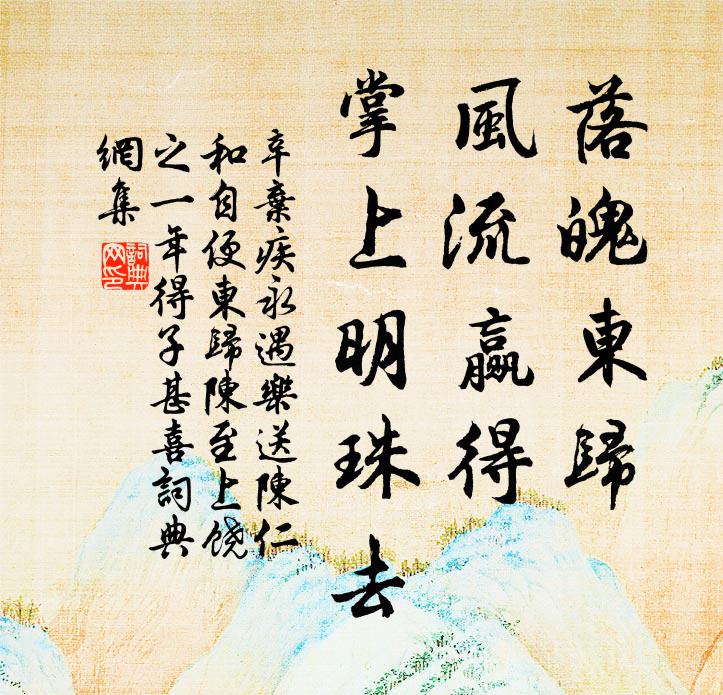 落魄東歸
風流贏得
掌上明珠去
辛棄疾永遇樂送陳仁
和自便東歸陳至上饒
之一年得子甚喜詞典
網集
詞典網印